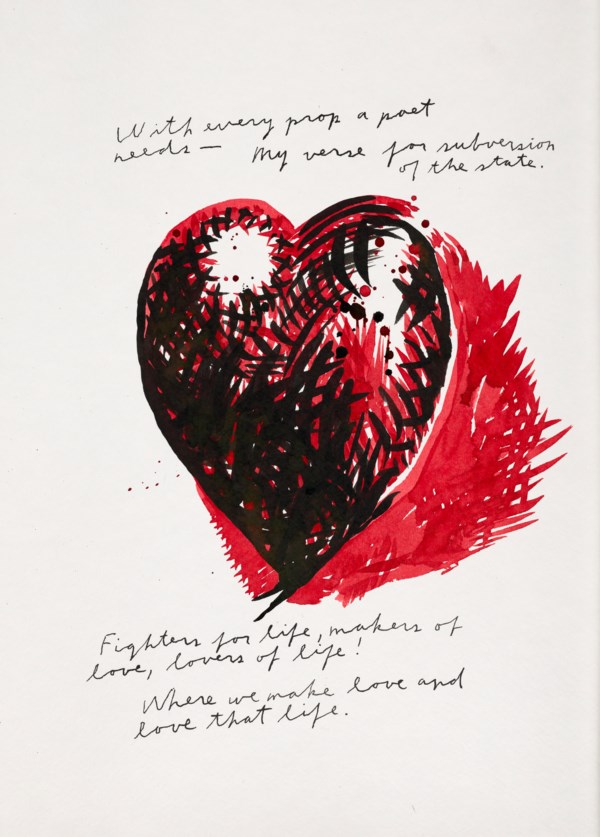 With every prop a poet
needs — My verse for subversion
of the state.
Fighters for life, makers of
love, lovers of life!
Where we make love and
love that life.